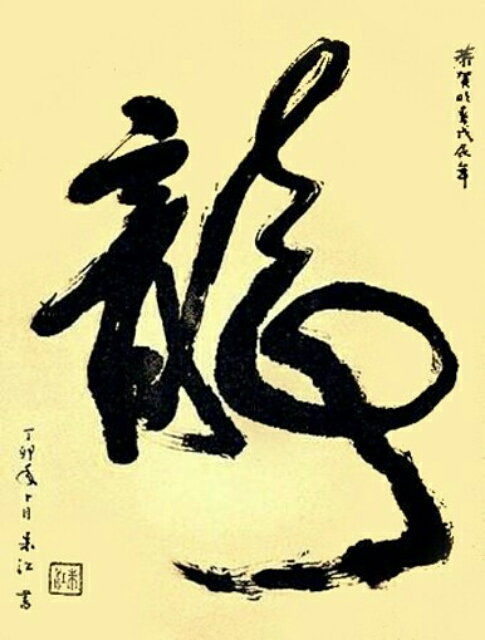 恭賀明春戊辰年
龍
丁卯年十月 江 書